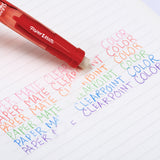 Paper Mate
PAPER MATE POINT COLOR
PAPER MATE POINT COLOR
PAPER MATE CLEARPOINT COLOR
PAPER MATE CLEARPOINT COLOR
PAPER MATE CLEARPOINT COLOR
PAPER MATE CLEARPOINT